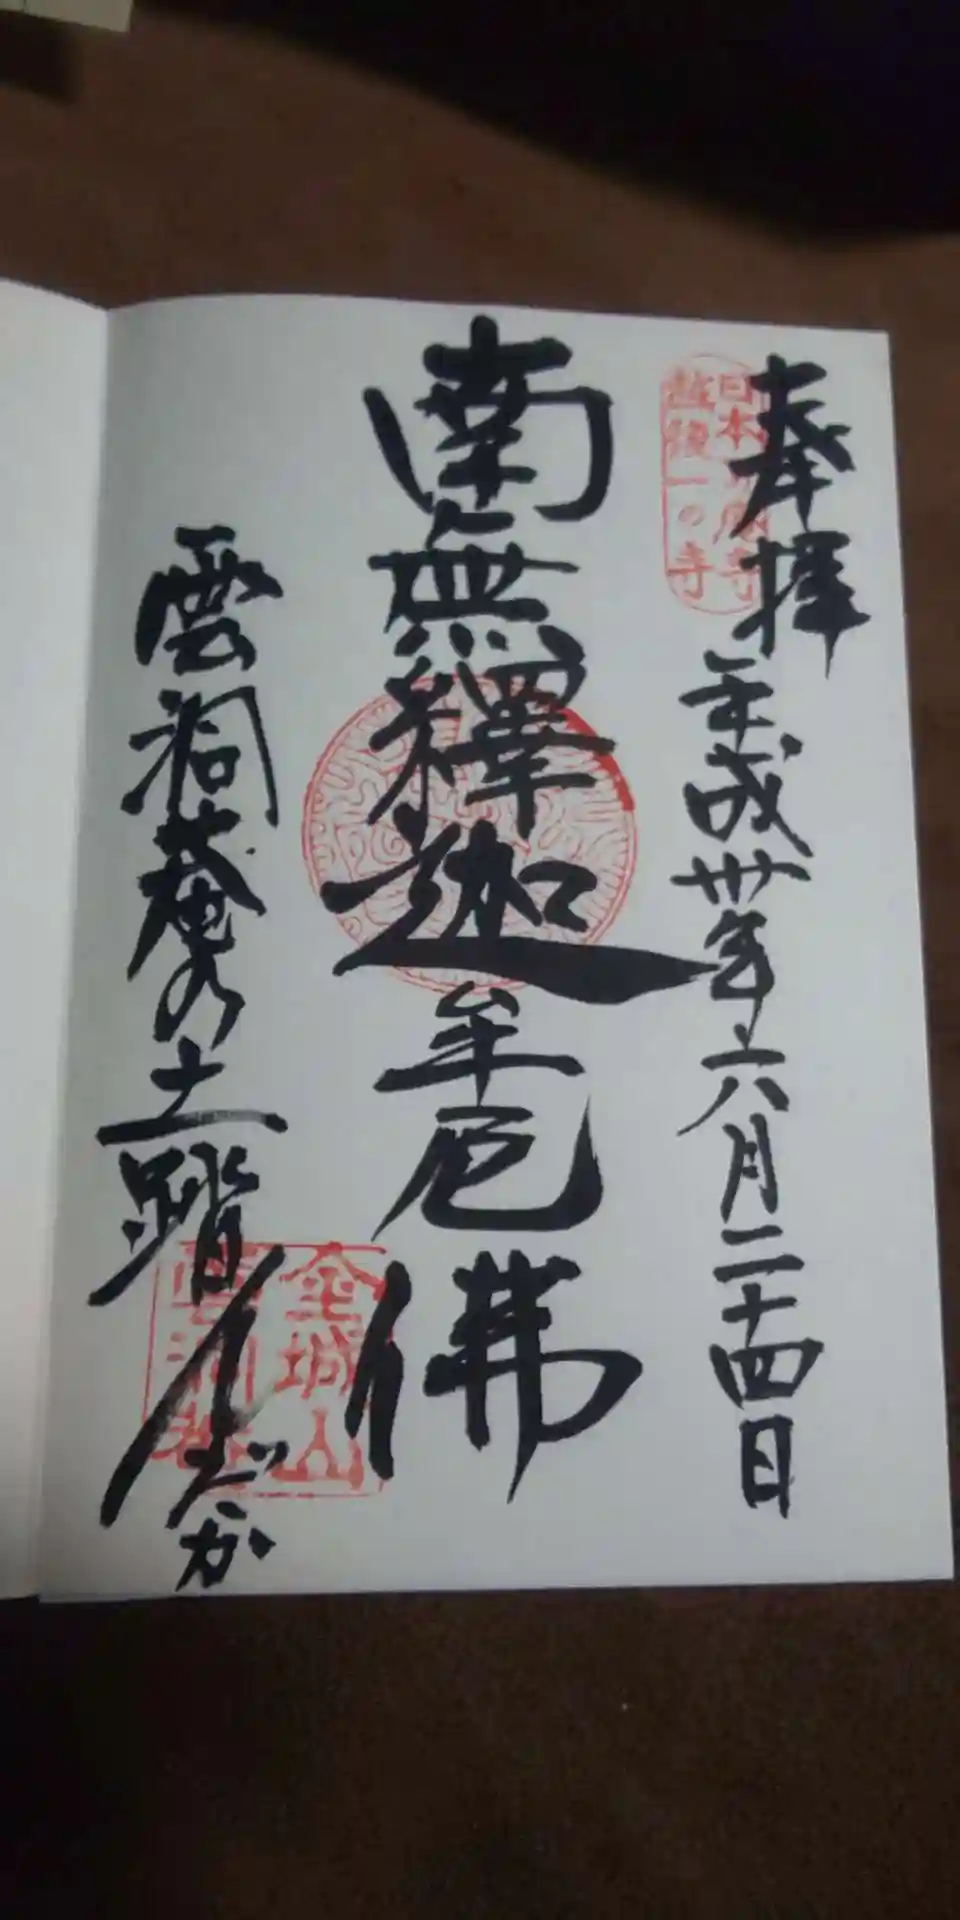 奉拝
平成卅年六月二十四日
日本
越後一の寺
南無釋迦牟尼佛
雲洞菴の土踏んだか
金城山
雲洞菴